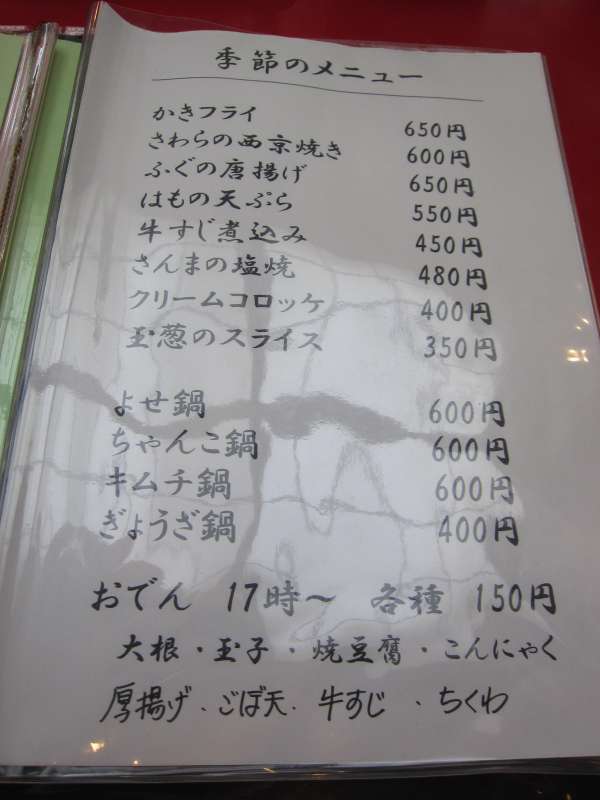 季節のメニュー
かきフライ 650円
さわらの西京焼き 600円
ふぐの唐揚げ 650円
はもの天ぷら 550円
牛すじ煮込み 450円
さんまの塩焼 480円
クリームコロッケ 400円
玉葱のスライス 350円
よせ鍋 600円
ちゃんこ鍋 600円
キムチ鍋 600円
ぎょうざ鍋 400円
おでん 17時～ 各種 150円
大根・玉子・焼豆腐・こんにゃく
厚揚げ・ごぼ天・牛すじ・ちくわ